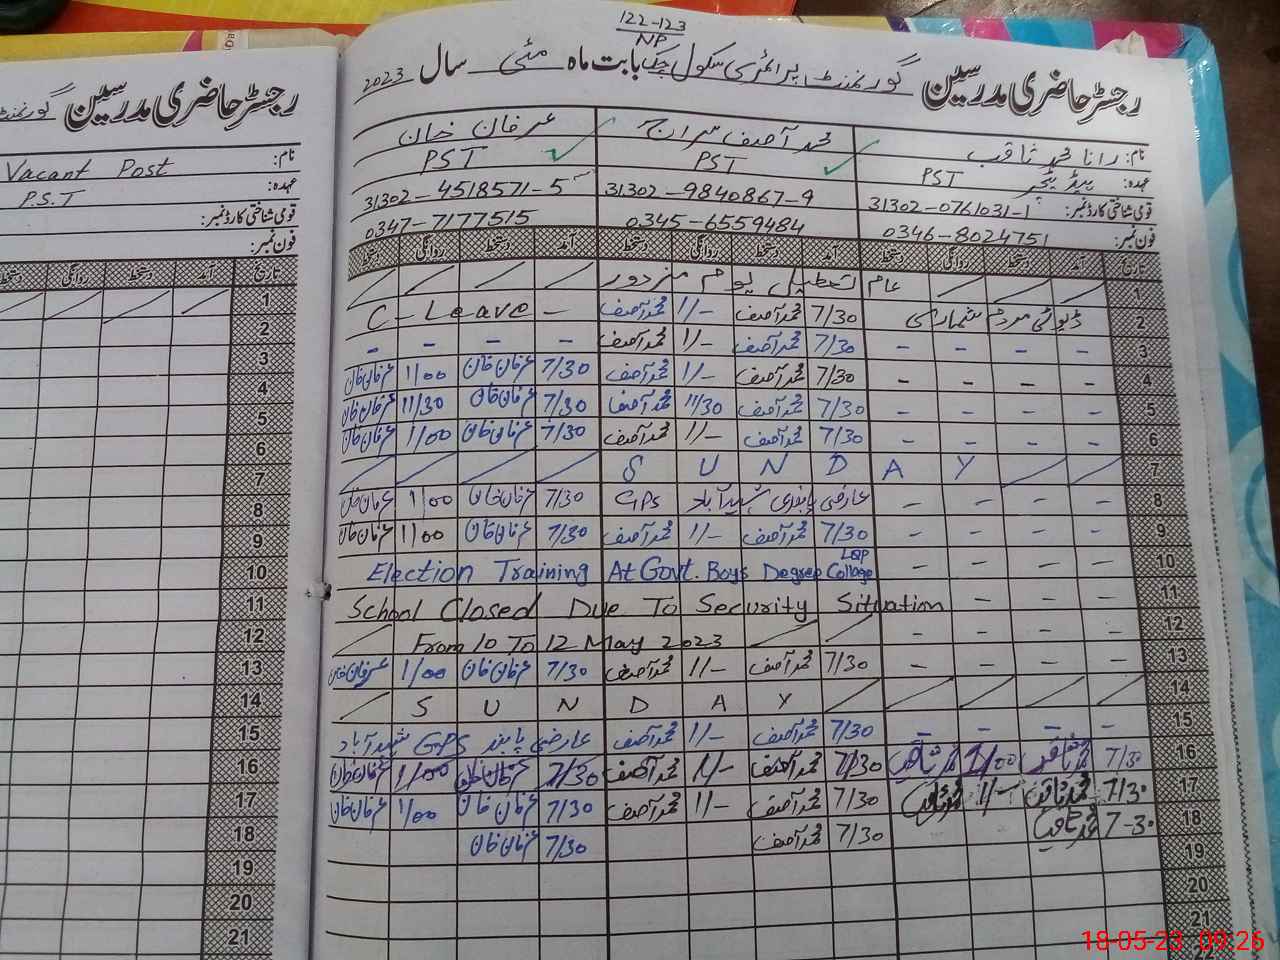 122-123
NP
رجسٹر حاضری مدرسین گورنمنٹ پرائمری سکول چک بابت ماہ مئی سال 2023
رجسٹر حاضری مدرسین گورنمنٹ
نام: رانا محمد ثاقب محمد آصف سراج عرفان خان
عہدہ: ہیڈ ٹیچر PST PST PST
قومی شناختی کارڈ نمبر: 31302-0761031-1 31302-9840867-9 31302-4518571-5
فون نمبر: 0346-8024751 0345-6559484 0347-7177515
نام: Vacant Post
عہدہ: P.S.T
قومی شناختی کارڈ نمبر:
فون نمبر:
تاریخ آمد دستخط روانگی دستخط آمد دستخط روانگی دستخط آمد دستخط روانگی دستخط
تاریخ آمد دستخط روانگی دستخط
1 عام تعطیل یوم مزدور
2 ڈیوٹی مردم شماری 7/30 محمد آصف 1/- محمد آصف C-Leave -
3 - - - - 7/30 محمد آصف 1/- محمد آصف - - - -
4 - - - - 7/30 محمد آصف 1/- محمد آصف 7/30 عرفان خان 1/00 عرفان خان
5 - - - - 7/30 محمد آصف 11/30 محمد آصف 7/30 عرفان خان 11/30 عرفان خان
6 - - - - 7/30 محمد آصف 1/- محمد آصف 7/30 عرفان خان 1/00 عرفان خان
7 S U N D A Y
8 - - - عارضی پابندی شہیدآباد GPS 7/30 عرفان خان 1/00 عرفان خان
9 - - - - 7/30 محمد آصف 1/- محمد آصف 7/30 عرفان خان 1/00 عرفان خان
10 Election Training At Govt. Boys Degree College LQP - - -
11 School Closed Due To Security Situation - - -
12 From 10 To 12 May 2023 - - - -
13 - - - - 7/30 محمد آصف 1/- محمد آصف 7/30 عرفان خان 1/00 عرفان خان
14 S U N D A Y
15 - - - - 7/30 محمد آصف 1/- محمد آصف عارضی پابند GPS شہیدآباد
16 7/30 محمد ثاقب 1/00 محمد ثاقب 7/30 محمد آصف 1/- محمد آصف 7/30 عرفان خان 1/00 عرفان خان
17 7/30 محمد ثاقب 1/- محمد ثاقب 7/30 محمد آصف 1/- محمد آصف 7/30 عرفان خان 1/00 عرفان خان
18 7-30 محمد ثاقب 7/30 محمد آصف 7/30 عرفان خان
19
20
21
22
1
2
3
4
5
6
7
8
9
10
11
12
13
14
15
16
17
18
19
20
21
18-05-23 09:26